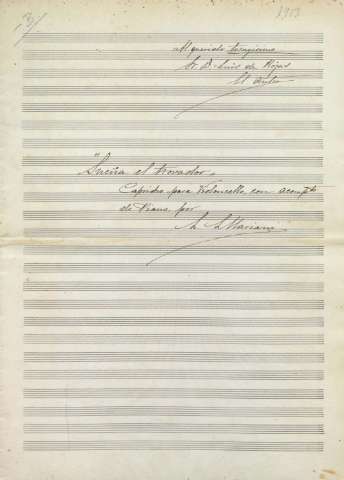 3/
1913
Al querido
Sr. D. Luis de Rojas
El autor
"Sueña el trovador"
Capricho para Violoncello, con acompto
de Piano, por
Mariani